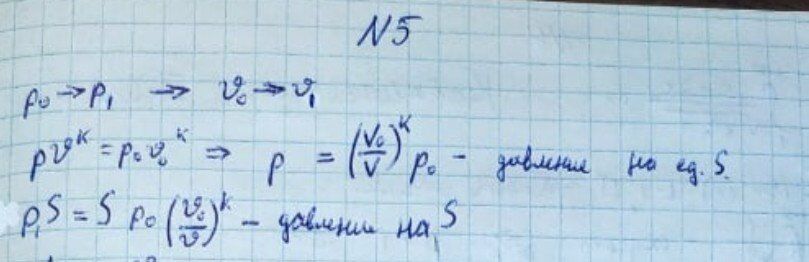 N5
p₀→p₁ → v₀→v₁
pv^k = p₀v₀^k ⇒ p = (V₀/V)^k p₀ - давление на ед. S.
p₁S = S p₀ (v₀/v)^k - давление на S